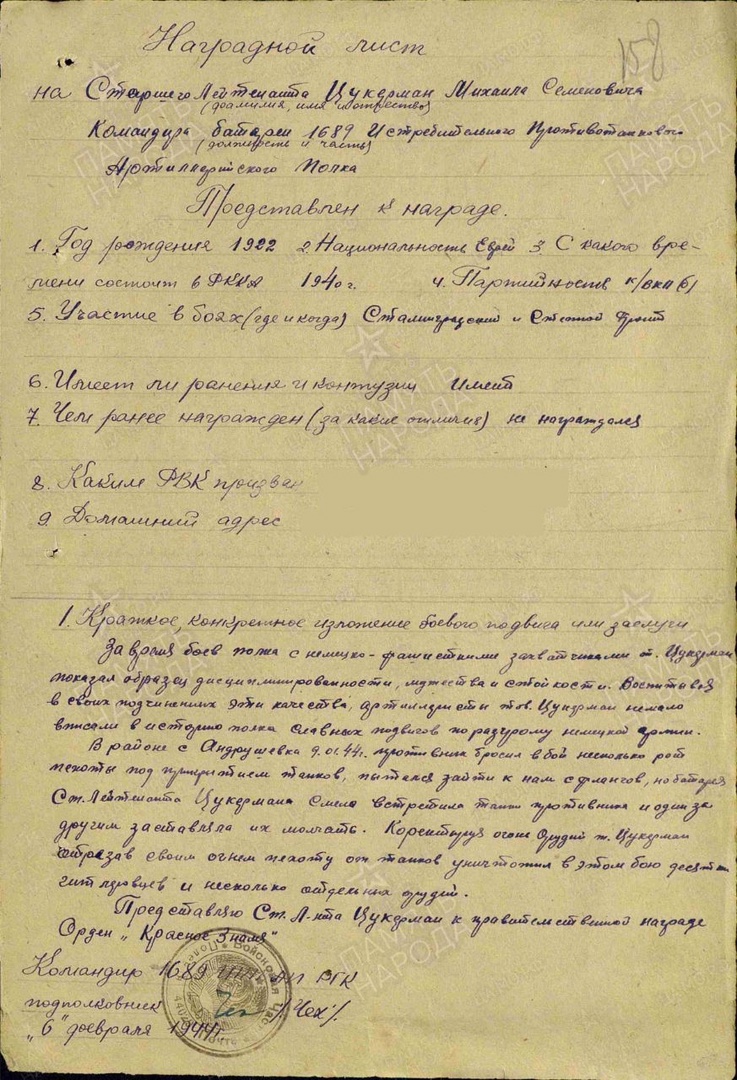 158
Наградной лист
на Старшего Лейтенанта Цукерман Михаила Семеновича
(фамилия, имя и отчество)
Командира батареи 1689 Истребительного Противотанкового
(должность и часть)
Артиллерийского Полка
Представлен к награде.
1. Год рождения 1922 2. Национальность Еврей 3. С какого вре-
мени состоит в РККА 1940 г. 4. Партийность к/вкп(б)
5. Участие в боях (где и когда) Сталинградский и Степной Фронт
6. Имеет ли ранения и контузии Имеет
7. Чем ранее награжден (за какие отличия) не награждался
8. Каким РВК призван
9. Домашний адрес
1. Краткое, конкретное изложение боевого подвига или заслуги
За время боев полка с немецко-фашисткими захватчиками т. Цукерман
показал образец дисциплинированности, мужества и стойкости. Воспитывая
в своих подчиненных эти качества, артиллеристы тов. Цукерман немало
вписали в историю полка славных подвигов по разгрому немецкой армии.
В районе с Андрушевка 9.01.44г. противник бросил в бой несколько рот
пехоты под прикрытием танков, пытаясь зайти к нам с флангов, но батарея
Ст. Лейтенанта Цукермана смело встретила танки противника и один за
другим заставляла их молчать. Коректируя огонь орудий т. Цукерман
отрезав своим огнем пехоту от танков уничтожил в этом бою десятки
гитлеровцев и несколько отдельных орудий.
Представляю Ст. Л-нта Цукерман к правительственной награде
Орден „Красное Знамя"
Командир 1689 ИПТАП РГК
подполковник /Чех/.
„6" февраля 1944г
Полевая Почта Войсковая Час
ПАМЯТЬ НАРОДА